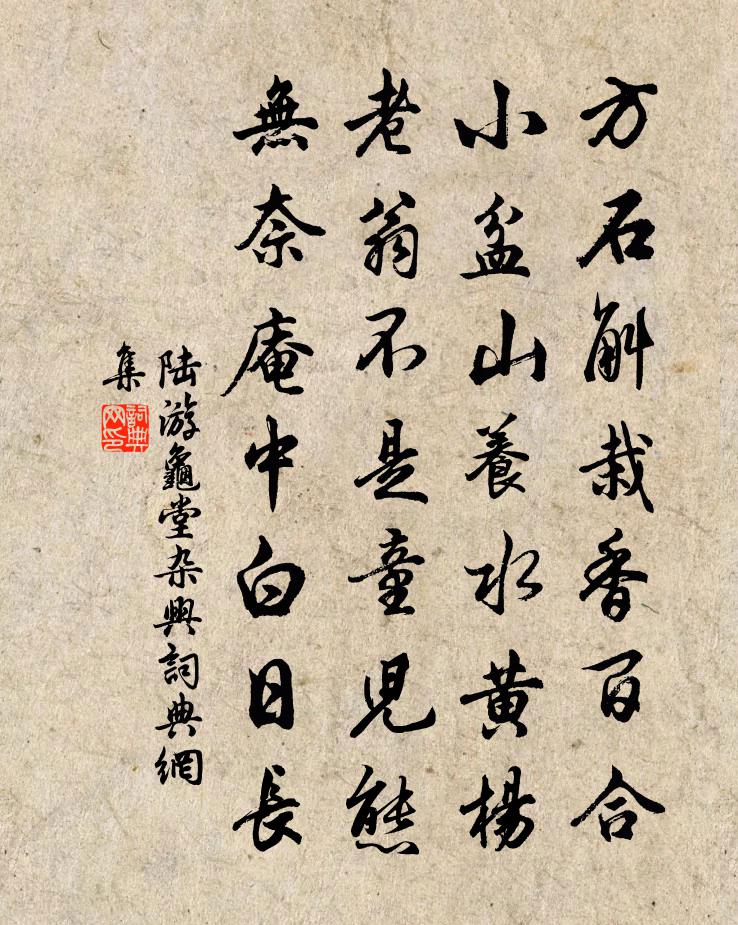 方石斛栽香百合
小盆山養水黃楊
老翁不是童兒態
無奈庵中白日長
陸游龜堂杂興詞典網
集
詞典网印